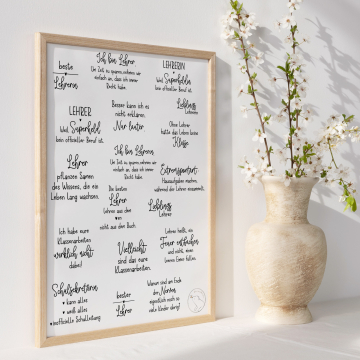 beste
Lehrerin
Ich bin Lehrer
Um Zeit zu sparen, nehmen wir
einfach an, dass ich immer
Recht habe.
LEHRERIN
Weil Superheldin
kein offizieller Beruf ist.
LEHRER
Weil Superheld
kein offizieller Beruf ist.
Besser kann ich es
nicht erklären.
Nur lauter
Lieblings
Lehrerin
Ich bin Lehrerin
Um Zeit zu sparen, nehmen wir
einfach an, dass ich immer
Recht habe.
Ohne Lehrer
hätte das Leben keine
Klasse
Lehrer
pflanzen Samen
des Wissens, die ein
Leben lang wachsen.
Extrempostart:
Hausaufgaben machen,
während der Lehrer einsammelt.
Die besten
Lehrer
Lehren aus dem
nicht aus dem Buch.
Lieblings
Lehrer
Ich habe eure
Klassenarbeiten
wirklich nicht
dabei!
Vielleicht
sind das eure
Klassenarbeiten.
Lehrer heißt, ein
Feuer entfachen
und nicht, einen
leeren Eimer füllen.
Schulsekretärin
kann alles
weiß alles
inoffizielle Schulleitung
bester
Lehrer
Warum sind am Ende
der Nerven
eigentlich noch so
viele Kinder übrig?